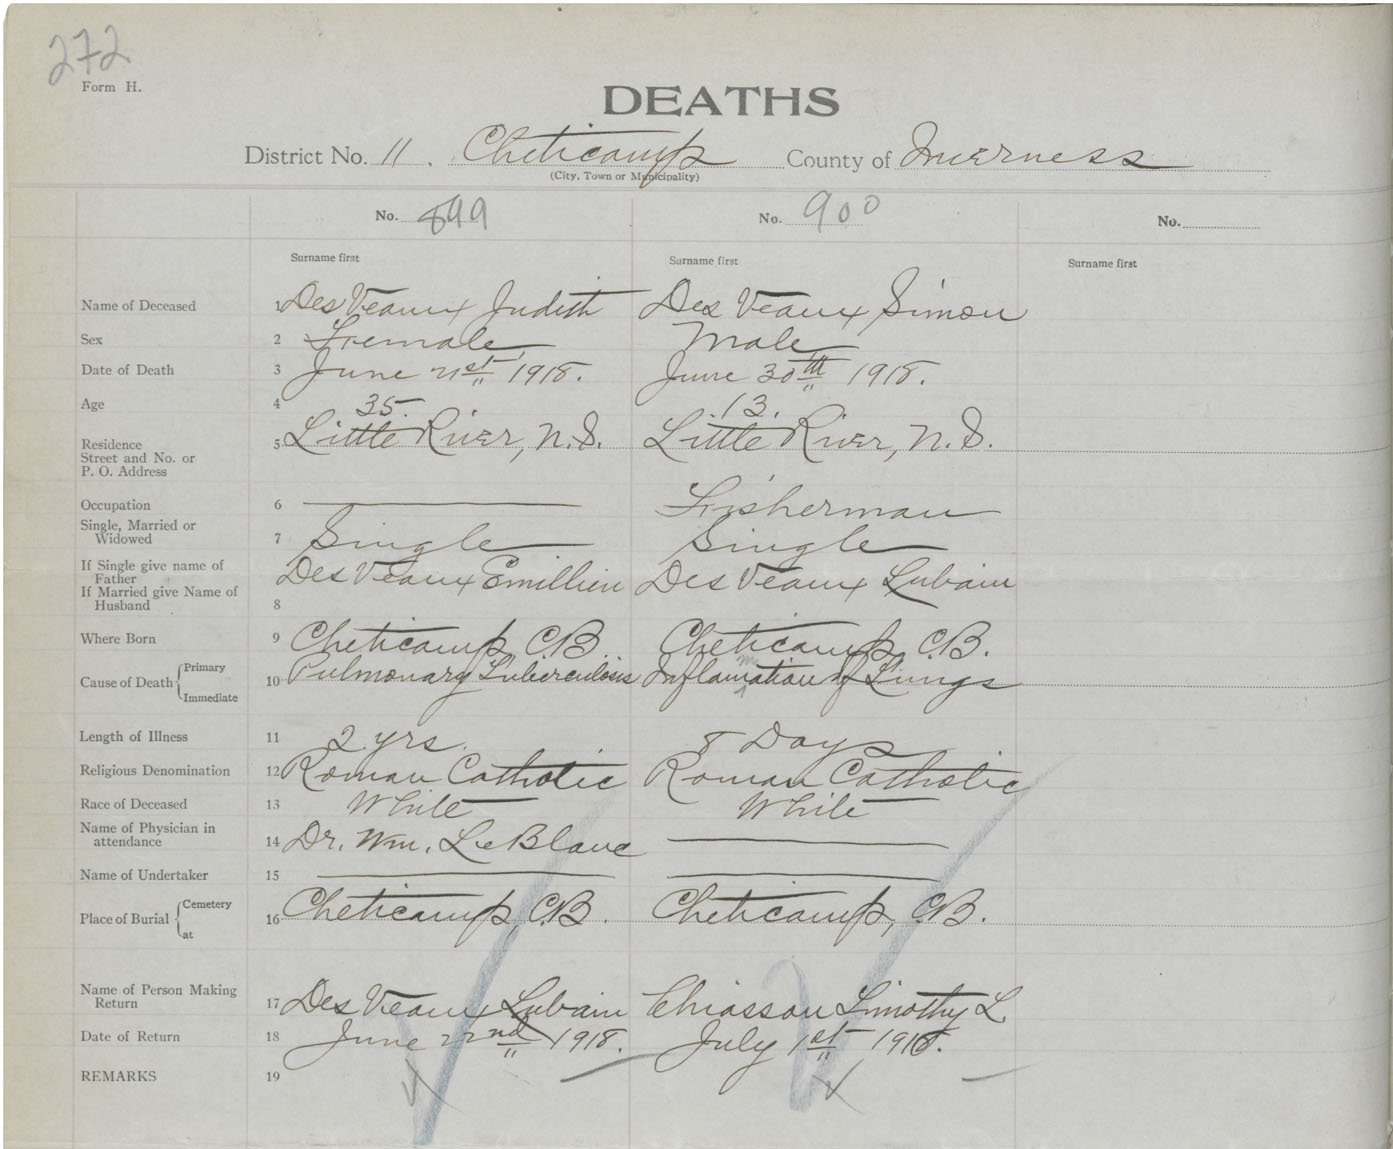 272
Form H.
DEATHS
District No. 11. Cheticamp County of Inverness
(City, Town or Municipality)
No. 899 No. 900 No.
Surname first Surname first Surname first
Name of Deceased 1 DesVeaux Judith Des Veaux Simon
Sex 2 Female Male
Date of Death 3 June 21st 1918. June 30th 1918.
Age 4 35. 13.
Residence
Street and No. or
P. O. Address
5 Little River, N.S. Little River, N.S.
Occupation 6 Fisherman
Single, Married or
Widowed
7 Single Single
If Single give name of
Father
DesVeaux Emillien DesVeaux Lubain
If Married give Name of
Husband
8
Where Born 9 Cheticamp C.B. Cheticamp C.B.
Cause of Death { Primary
Immediate
10 Pulmonary Tuberculosis Inflamation of Lungs
m
Length of Illness 11 2 yrs. 8 Days
Religious Denomination 12 Roman Catholic Roman Catholic
Race of Deceased 13 White White
Name of Physician in
attendance
14 Dr. Wm. LeBlanc
Name of Undertaker 15
Place of Burial { Cemetery
at
16 Cheticamp, C.B. Cheticamp, C.B.
Name of Person Making
Return
17 DesVeaux Lubain Chiasson Timothy L.
Date of Return 18 June 22nd 1918. July 1st 1918.
REMARKS 19